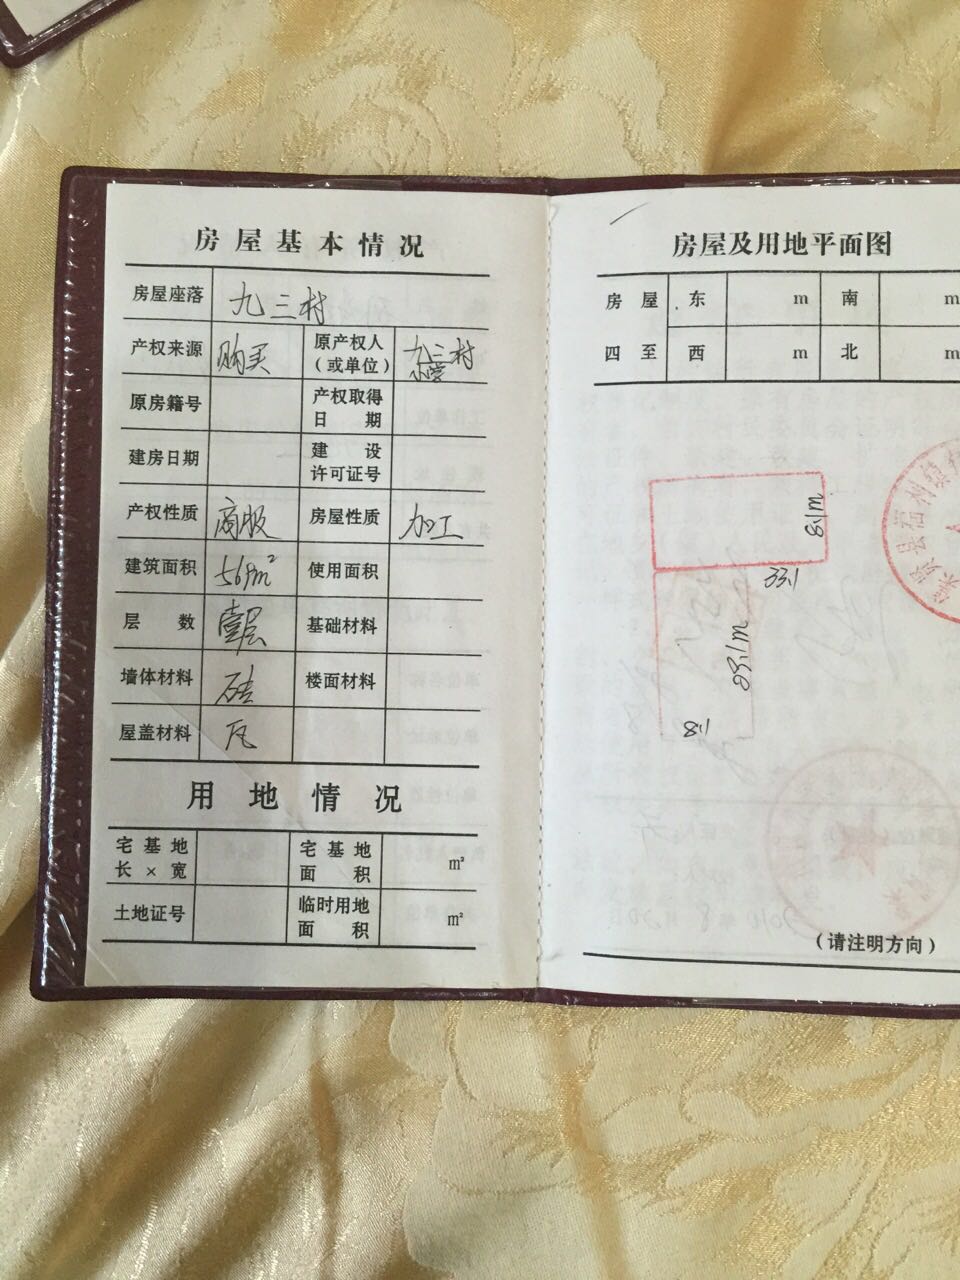 房屋基本情况
房屋座落 九三村
产权来源 购买 原产权人(或单位) 九三村
原房籍号 产权取得日期
建房日期 建设许可证号
产权性质 房屋性质 加工
建筑面积 569m² 使用面积
层数 壹层 基础材料
墙体材料 砖 楼面材料
屋盖材料 瓦
用地情况
宅基地长×宽 宅基地面积 m²
土地证号 临时用地面积 m²
房屋及用地平面图
房屋 东 m 南 m
四至 西 m 北 m
8.1m
33.1
8.1
(请注明方向)